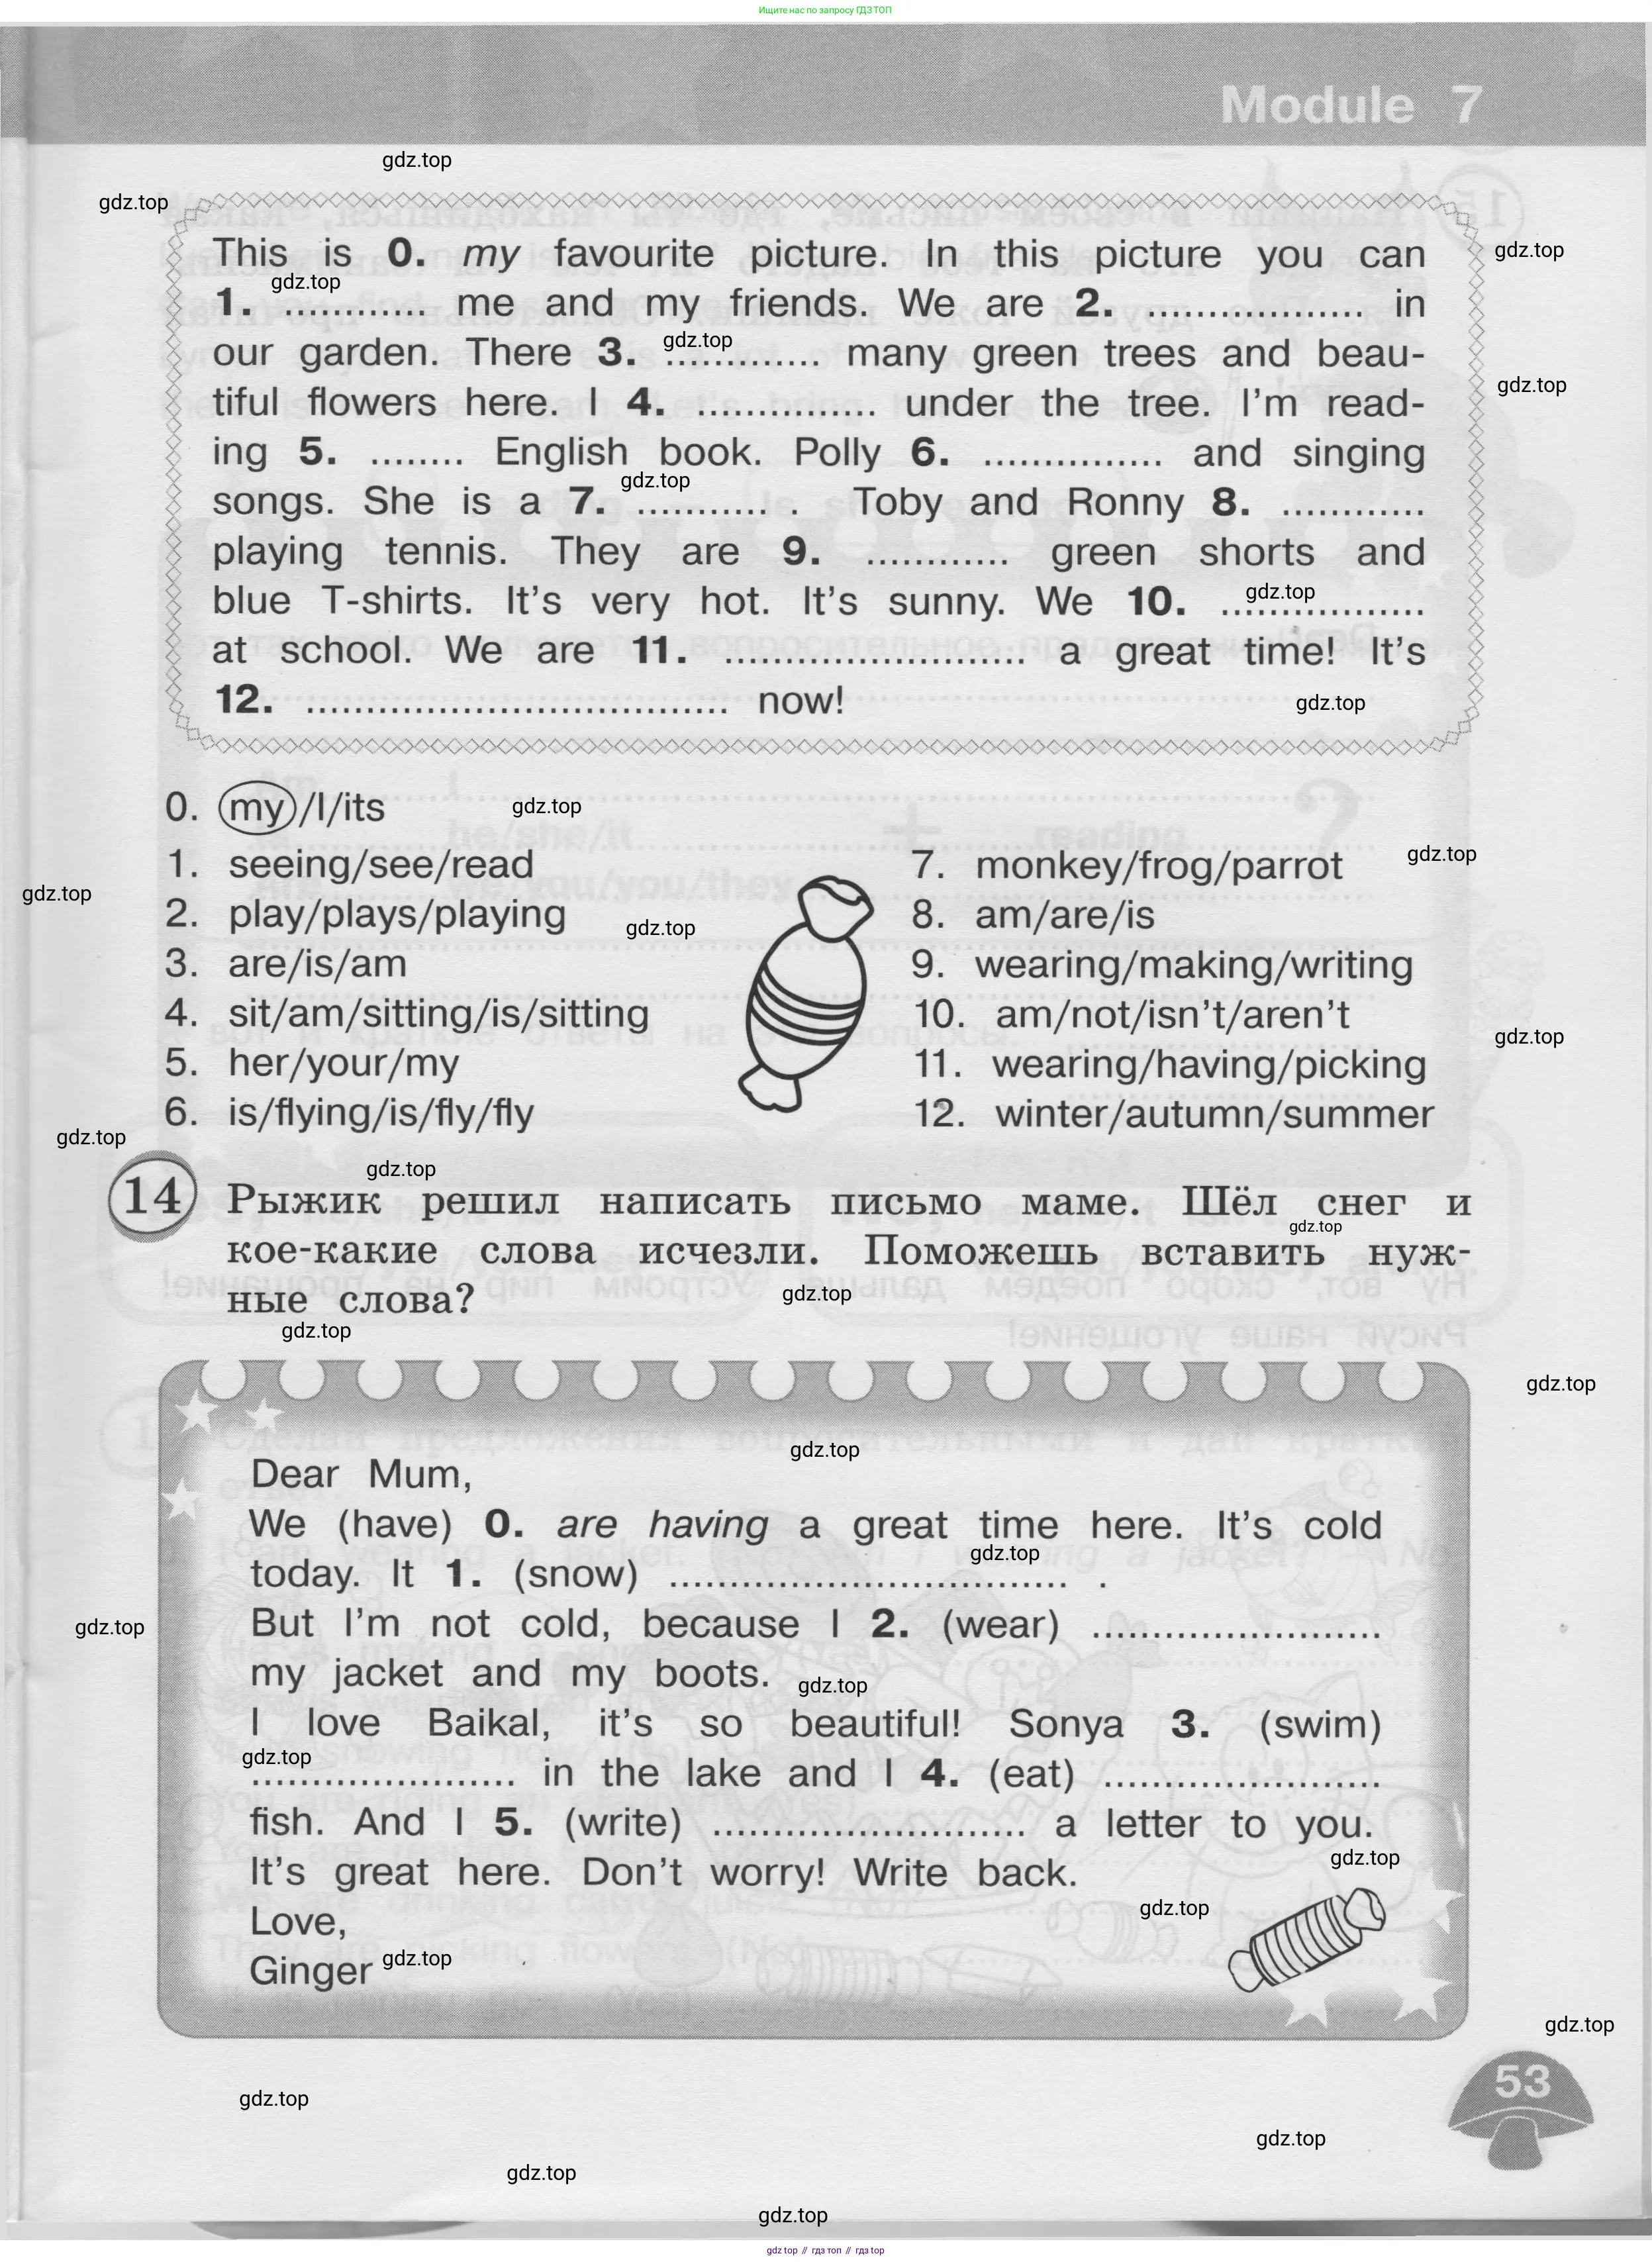 Ищите нас по запросу ГДЗ ТОП
Module 7
gdz.top
gdz.top
This is 0. my favourite picture. In this picture you can
gdz.top
gdz.top
1. ............ me and my friends. We are 2. .................. in
gdz.top
our garden. There 3. ............. many green trees and beau-
gdz.top
tiful flowers here. I 4. ............... under the tree. I'm read-
ing 5. ........ English book. Polly 6. ............... and singing
gdz.top
songs. She is a 7. ........... . Toby and Ronny 8. ............
playing tennis. They are 9. ............ green shorts and
gdz.top
blue T-shirts. It's very hot. It's sunny. We 10. .................
at school. We are 11. ......................... a great time! It's
12. ................................... now!
gdz.top
0. my/I/its
gdz.top
1. seeing/see/read
2. play/plays/playing
3. are/is/am
4. sit/am/sitting/is/sitting
5. her/your/my
6. is/flying/is/fly/fly
gdz.top
gdz.top
7. monkey/frog/parrot
8. am/are/is
9. wearing/making/writing
10. am/not/isn't/aren't
11. wearing/having/picking
12. winter/autumn/summer
gdz.top
gdz.top
gdz.top
gdz.top
14 Рыжик решил написать письмо маме. Шёл снег и
gdz.top
кое-какие слова исчезли. Поможешь вставить нуж-
ные слова?
gdz.top
gdz.top
gdz.top
gdz.top
Dear Mum,
We (have) 0. are having a great time here. It's cold
gdz.top
today. It 1. (snow) ................................. .
But I'm not cold, because I 2. (wear) ........................
gdz.top
my jacket and my boots.
gdz.top
I love Baikal, it's so beautiful! Sonya 3. (swim)
gdz.top
...................... in the lake and I 4. (eat) .......................
fish. And I 5. (write) .......................... a letter to you.
gdz.top
It's great here. Don't worry! Write back.
gdz.top
Love,
Ginger
gdz.top
gdz.top
53
gdz.top
gdz.top
gdz.top
gdz.top
gdz top // гдз топ // гдз top